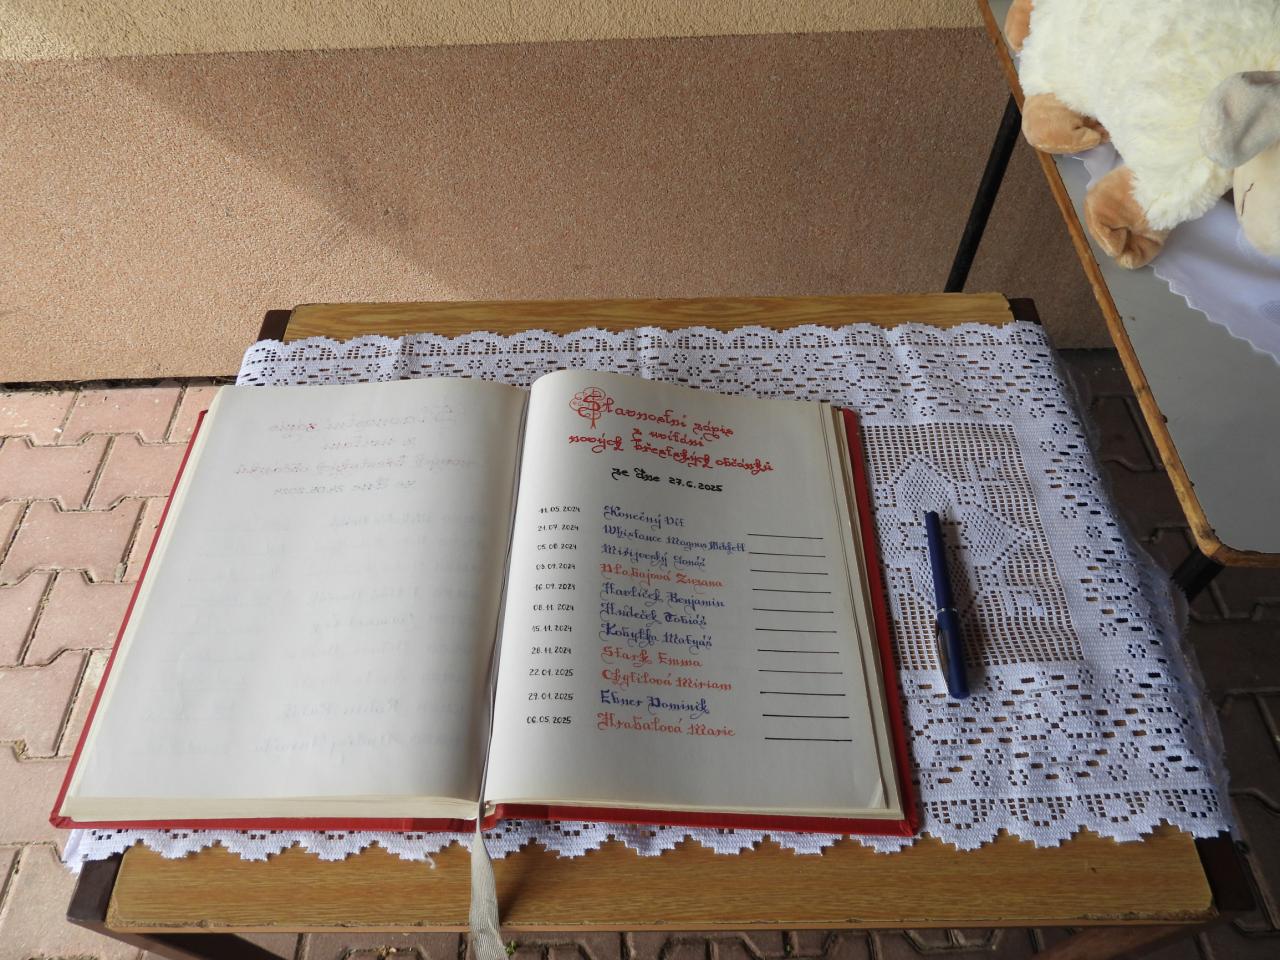 Slavnostní zápis
z uvítání
nových Břestských občánků
ze dne 27.6.2025
11.05.2024 Konečný Vít
21.07.2024 Whistance Magnus
05.08.2024 Misijovský Jonáš
03.09.2024 Dlabajová Zuzana
16.09.2024 Havlíček Benjamin
08.11.2024 Hudeček Tobiáš
15.11.2024 Kobylka Matyáš
28.11.2024 Stark Emma
22.01.2025 Chytilová Miriam
29.01.2025 Ebner Dominik
06.05.2025 Hrabalová Marie